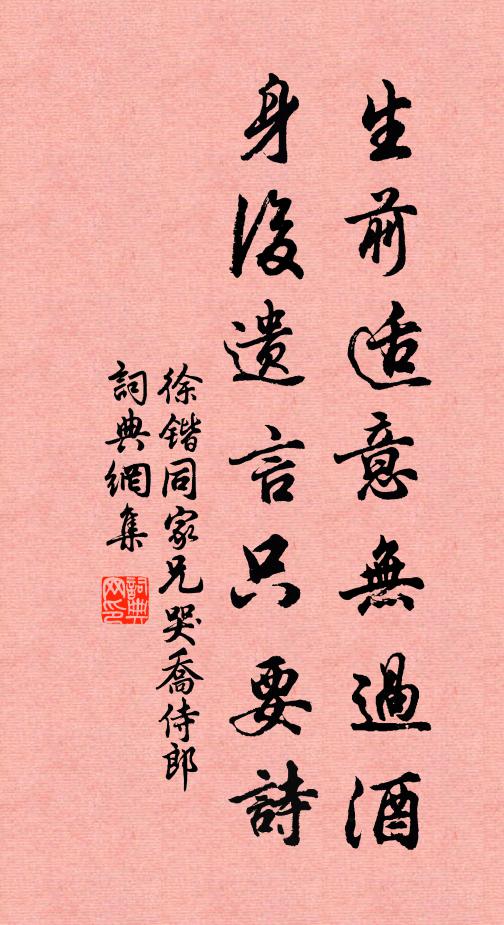 生前适意無過酒
身後遺言只要詩
徐鍇同家兄哭喬侍郎
詞典網集
詞典
网印